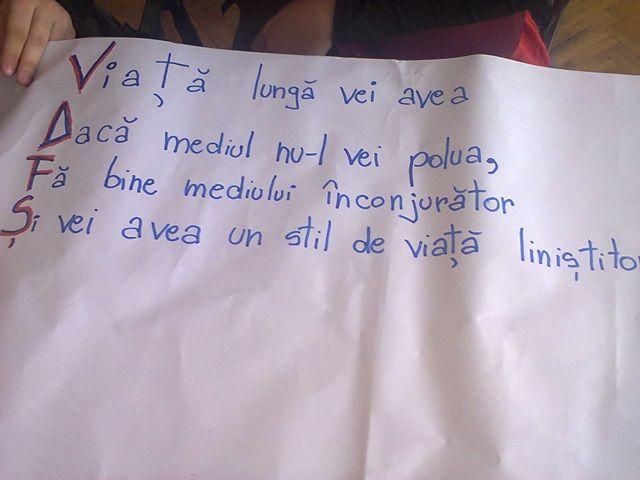 Viaţă lungă vei avea
Dacă mediul nu-l vei polua,
Fă bine mediului înconjurător
Și vei avea un stil de viaţă liniștitor